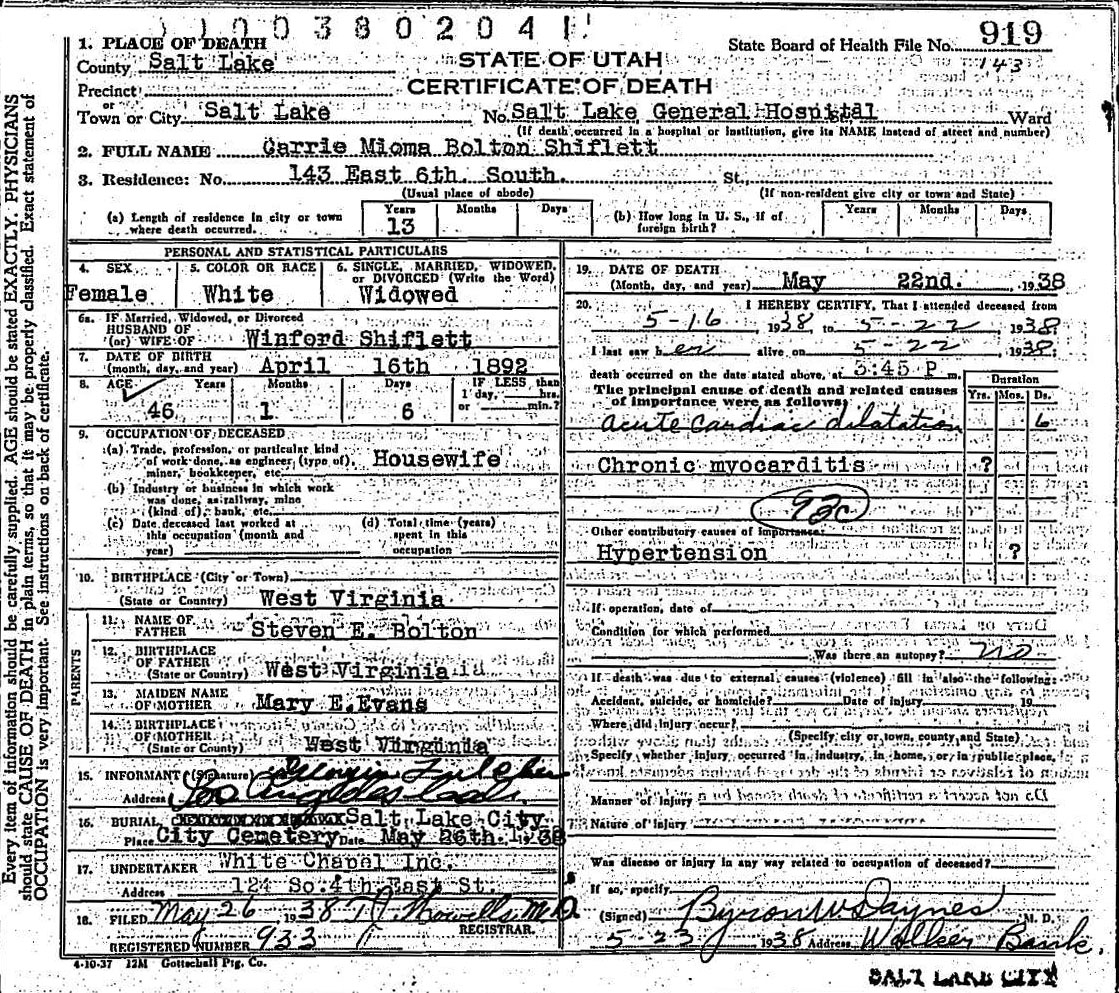 11003802041
1. PLACE OF DEATH
County Salt Lake
Precinct
or
Town or City Salt Lake
STATE OF UTAH
CERTIFICATE OF DEATH
State Board of Health File No. 919
143
No. Salt Lake General Hospital St., Ward
(If death occurred in a hospital or institution, give its NAME instead of street and number)
2. FULL NAME Carrie Mioma Bolton Shiflett
3. Residence: No. 143 East 6th. South. St.,
(Usual place of abode) (If non-resident give city or town and State)
(a) Length of residence in city or town where death occurred. Years 13 Months Days
(b) How long in U. S., if of foreign birth? Years Months Days
PERSONAL AND STATISTICAL PARTICULARS
4. SEX Female
5. COLOR OR RACE White
6. SINGLE, MARRIED, WIDOWED, or DIVORCED (Write the Word) Widowed
6a. IF Married, Widowed, or Divorced
HUSBAND OF
(or) WIFE OF Winford Shiflett
7. DATE OF BIRTH
(month, day, and year) April 16th 1892
8. AGE Years 46 Months 1 Days 6 IF LESS than 1 day, hrs. or min.?
9. OCCUPATION OF DECEASED
(a) Trade, profession, or particular kind of work done, as engineer (type of), miner, bookkeeper, etc. Housewife
(b) Industry or business in which work was done, as railway, mine (kind of), bank, etc.
(c) Date deceased last worked at this occupation (month and year)
(d) Total time (years) spent in this occupation
10. BIRTHPLACE (City or Town)
(State or Country) West Virginia
PARENTS
11. NAME OF FATHER Steven E. Bolton
12. BIRTHPLACE OF FATHER
(State or Country) West Virginia
13. MAIDEN NAME OF MOTHER Mary E. Evans
14. BIRTHPLACE OF MOTHER
(State or Country) West Virginia
15. INFORMANT (Signature)
Address Los Angeles Cal.
16. BURIAL, Salt Lake City
Place City Cemetery Date May 26th. 1938
17. UNDERTAKER White Chapel Inc.
Address 124 So. 4th East St.
18. FILED May 26 1938 M.D.
REGISTRAR.
REGISTERED NUMBER 933
4-10-37 12M Gottschall Ptg. Co.
19. DATE OF DEATH
(Month, day, and year) May 22nd. 1938
20. I HEREBY CERTIFY, That I attended deceased from
5-16 1938 to 5-22 1938
I last saw h er alive on 5-22 1938
death occurred on the date stated above, at 3:45 P m.
The principal cause of death and related causes of importance were as follows:
Duration
Yrs. Mos. Ds.
acute cardiac dilatation 6
Chronic myocarditis ?
92c
Other contributory causes of importance:
Hypertension ?
If operation, date of
Condition for which performed
Was there an autopsy? no
If death was due to external causes (violence) fill in also the following:
Accident, suicide, or homicide? Date of injury 19
Where did injury occur?
(Specify city or town, county, and State)
Specify whether injury occurred in industry, in home, or in public place,
Manner of injury
Nature of injury
Was disease or injury in any way related to occupation of deceased?
If so, specify
(Signed) Byron W Daynes M. D.
5-23 1938 Address Walker Bank.
SALT LAKE CITY
Every item of information should be carefully supplied. AGE should be stated EXACTLY. PHYSICIANS
should state CAUSE OF DEATH in plain terms, so that it may be properly classified. Exact statement of
OCCUPATION is very important. See instructions on back of certificate.